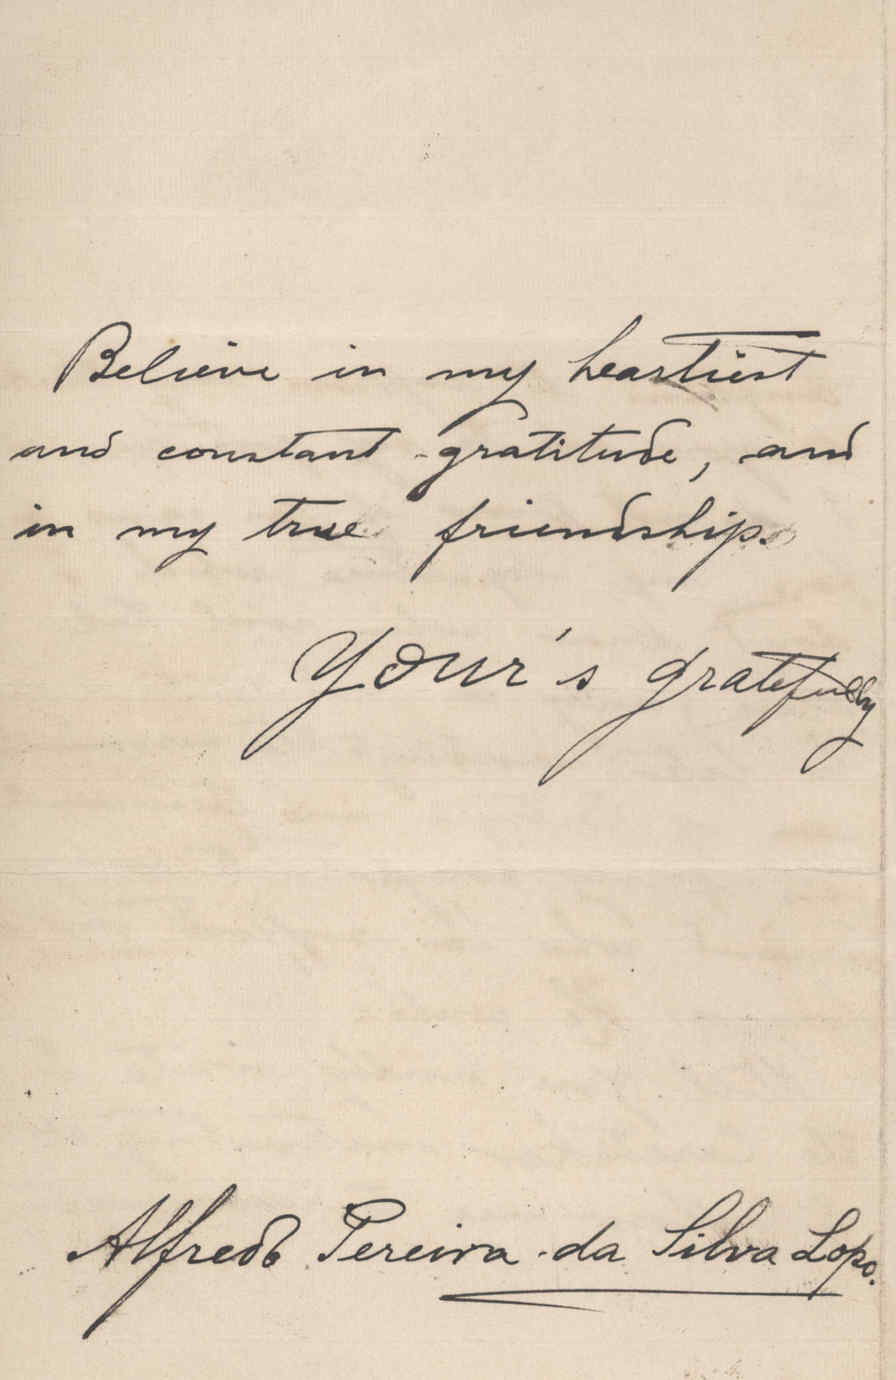 Believe in my heartiest
and constant gratitude, and
in my true friendship.
Your's gratefully
Alfredo Pereira da Silva Lopo.